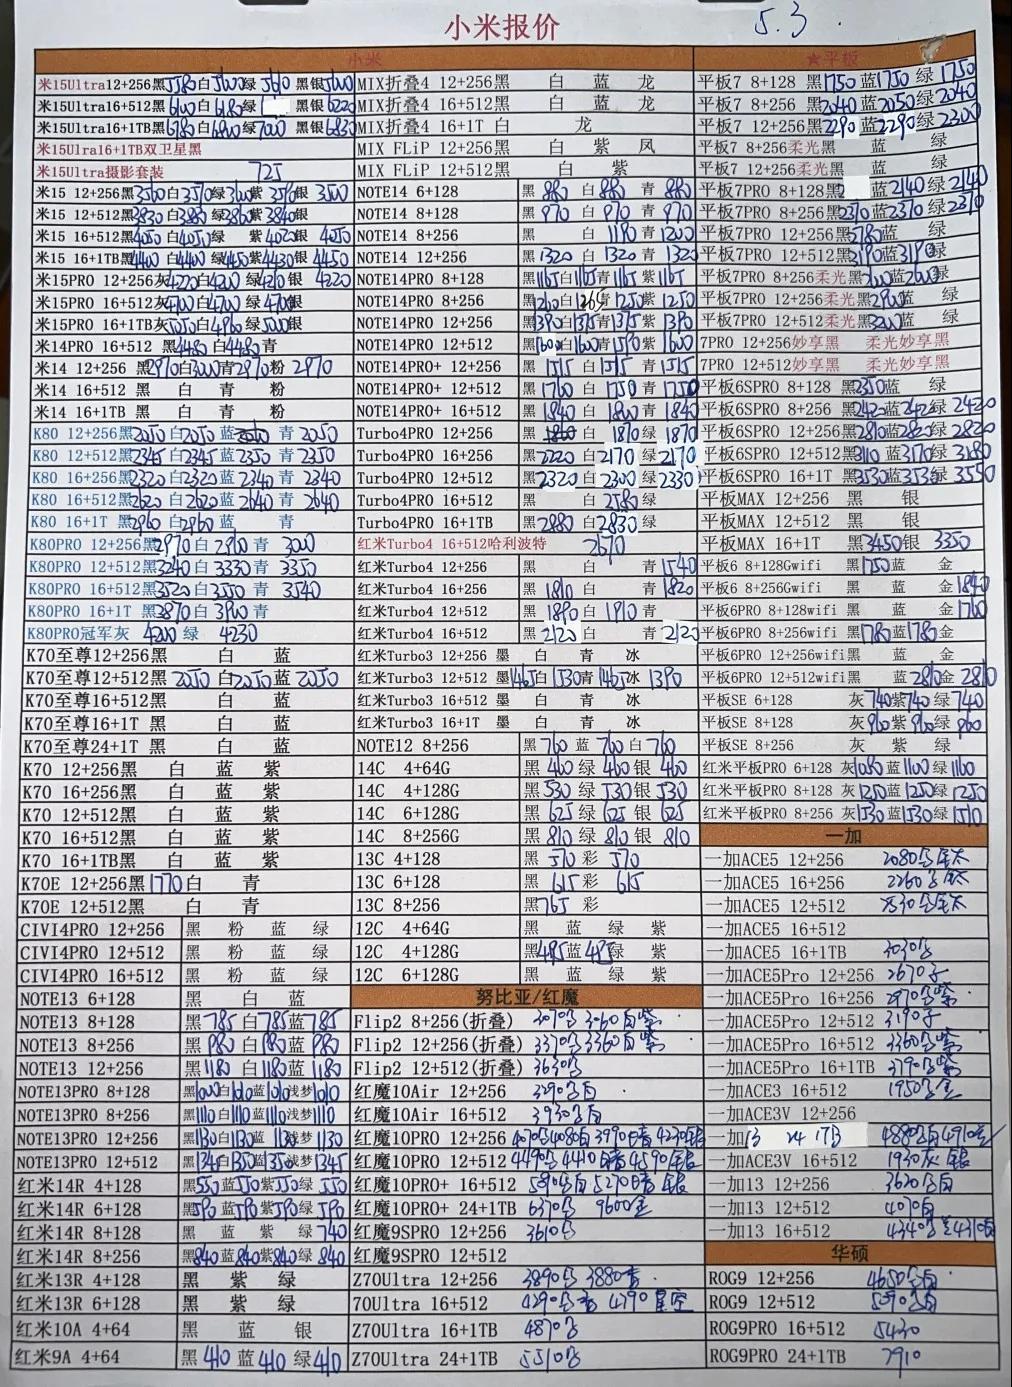 小米报价
5.3
小米
★平板
米15Ultra12+256黑5580白5600绿5610黑银5600
米15Ultra16+512黑6100白6180绿 黑银6220
米15Ultra16+1TB黑6780白6800绿7000 黑银6830
米15Ulra16+1TB双卫星黑
米15Ultra摄影套装 725
米15 12+256黑3560白3570绿 紫3510银3500
米15 12+512黑3830白3880绿3860紫3840银
米15 16+512黑4050白4050绿 紫4020银4050
米15 16+1TB黑4400白4400绿4450紫4430银4450
米15PRO 12+256灰4220白4200绿4210银4220
米15PRO 16+512灰4700白4700绿4700银
米15PRO 16+1TB灰5050白4960绿5000银
米14PRO 16+512 黑4480白4480青
米14 12+256 黑2970白3000青2970粉2970
米14 16+512 黑 白 青 粉
米14 16+1TB 黑 白 青 粉
K80 12+256黑2050白2050蓝 青2050
K80 12+512黑2345白2345蓝2350青2350
K80 16+256黑2320白2320蓝2340青2340
K80 16+512黑2620白2620蓝2640青2640
K80 16+1T 黑2960白2960蓝 青
K80PRO 12+256黑2970白2960青3000
K80PRO 12+512黑3240白3330青3350
K80PRO 16+512黑3520白3550青3540
K80PRO 16+1T 黑3870白3900青
K80PRO冠军灰 4200绿4230
K70至尊12+256黑 白 蓝
K70至尊12+512黑2050白2050蓝2050
K70至尊16+512黑 白 蓝
K70至尊16+1T 黑 白 蓝
K70至尊24+1T 黑 白 蓝
K70 12+256黑 白 蓝 紫
K70 16+256黑 白 蓝 紫
K70 12+512黑 白 蓝 紫
K70 16+512黑 白 蓝 紫
K70 16+1TB黑 白 蓝 紫
K70E 12+256黑1770白 青
K70E 12+512黑 白 青
CIVI4PRO 12+256 黑 粉 蓝 绿
CIVI4PRO 12+512 黑 粉 蓝 绿
CIVI4PRO 16+512 黑 粉 蓝 绿
NOTE13 6+128 黑 白 蓝
NOTE13 8+128 黑785白785蓝785
NOTE13 8+256 黑980白980蓝980
NOTE13 12+256 黑1180白1180蓝1180
NOTE13PRO 8+128 黑1000白1010蓝1010浅梦1010
NOTE13PRO 8+256 黑1110白1110蓝1110浅梦1110
NOTE13PRO 12+256 黑1130白1130蓝1130浅梦1130
NOTE13PRO 12+512 黑1345白1350蓝1350浅梦1345
红米14R 4+128 黑550蓝550紫550绿550
红米14R 6+128 黑590蓝590紫590绿590
红米14R 8+128 黑 蓝 紫 绿740
红米14R 8+256 黑840蓝840紫840绿840
红米13R 4+128 黑 紫 绿
红米13R 6+128 黑 紫 绿
红米10A 4+64 黑 蓝 银
红米9A 4+64 黑410蓝410绿410
MIX折叠4 12+256黑 白 蓝 龙
MIX折叠4 16+512黑 白 蓝 龙
MIX折叠4 16+1T 白 龙
MIX FLiP 12+256黑 白 紫 凤
MIX FLiP 12+512黑 白 紫
NOTE14 6+128 黑880白880青880
NOTE14 8+128 黑970白970青970
NOTE14 8+256 黑 白1190青1200
NOTE14 12+256 黑1320白1320青1320
NOTE14PRO 8+128 黑1165白1165青1165紫1165
NOTE14PRO 8+256 黑1260白1265青1250紫1250
NOTE14PRO 12+256 黑1390白1375青1375紫1390
NOTE14PRO 12+512 黑1600白1600青1590紫1600
NOTE14PRO+ 12+256 黑1515白1515青1515
NOTE14PRO+ 12+512 黑1760白1750青1750
NOTE14PRO+ 16+512 黑1840白1840青1840
Turbo4PRO 12+256 黑1860白1870绿1870
Turbo4PRO 16+256 黑2220白2170绿2170
Turbo4PRO 12+512 黑2320白2300绿2330
Turbo4PRO 16+512 黑 白2580绿
Turbo4PRO 16+1TB 黑2880白2830绿
红米Turbo4 16+512哈利波特 2670
红米Turbo4 12+256 黑 白 青1540
红米Turbo4 16+256 黑1810白 青1820
红米Turbo4 12+512 黑1890白1910青
红米Turbo4 16+512 黑2120白 青2120
红米Turbo3 12+256 墨 白 青 冰
红米Turbo3 12+512 墨1465白1530青1465冰1390
红米Turbo3 16+512 墨 白 青 冰
红米Turbo3 16+1T 墨 白 青 冰
NOTE12 8+256 黑760蓝760白760
14C 4+64G 黑460绿460银460
14C 4+128G 黑530绿530银530
14C 6+128G 黑625绿625银625
14C 8+256G 黑810绿810银810
13C 4+128 黑570彩570
13C 6+128 黑615彩615
13C 8+256 黑765彩
12C 4+64G 黑 蓝 绿 紫
12C 4+128G 黑485蓝485绿 紫
12C 6+128G 黑 蓝 绿 紫
努比亚/红魔
Flip2 8+256(折叠) 3070 3060白紫
Flip2 12+256(折叠) 3370 3360白紫
Flip2 12+512(折叠) 3630
红魔10Air 12+256 3290 白
红魔10Air 16+512 3930 白
红魔10PRO 12+256
红魔10PRO 12+512
红魔10PRO+ 16+512
红魔10PRO+ 24+1TB 6370 9600金
红魔9SPRO 12+256 3610
红魔9SPRO 12+512
Z70Ultra 12+256 3890 3880青
70Ultra 16+512 4290 4790星空
Z70Ultra 16+1TB 4870
Z70Ultra 24+1TB 5510
平板7 8+128 黑1750蓝1750绿1750
平板7 8+256 黑2040蓝2050绿2040
平板7 12+256黑2290蓝2290绿2300
平板7 8+256柔光黑 蓝 绿
平板7 12+256柔光黑 蓝 绿
平板7PRO 8+128黑2 蓝2140绿2140
平板7PRO 8+256黑2370蓝2370绿2370
平板7PRO 12+256黑 蓝 绿
平板7PRO 12+512黑3190蓝3190绿
平板7PRO 8+256柔光黑2600蓝2600绿
平板7PRO 12+256柔光黑2900蓝 绿
平板7PRO 12+512柔光黑3200蓝 绿
7PRO 12+256妙享黑 柔光妙享黑
7PRO 12+512妙享黑 柔光妙享黑
平板6SPRO 8+128 黑2350蓝 绿
平板6SPRO 8+256 黑2420蓝2420绿2420
平板6SPRO 12+256黑2810蓝2820绿2820
平板6SPRO 12+512黑3110蓝3170绿3180
平板6SPRO 16+1T 黑3530蓝3530绿3550
平板MAX 12+256 黑 银
平板MAX 12+512 黑 银
平板MAX 16+1T 黑3450银3350
平板6 8+128Gwifi 黑1750蓝 金
平板6 8+256Gwifi 黑 蓝 金1840
平板6PRO 8+128wifi 黑 蓝 金1760
平板6PRO 8+256wifi 黑1780蓝1780金
平板6PRO 12+256wifi黑 蓝 金
平板6PRO 12+512wifi黑 蓝2810金2810
平板SE 6+128 灰740紫740绿740
平板SE 8+128 灰960紫960绿960
平板SE 8+256 灰 紫 绿
红米平板PRO 6+128 灰1080蓝1100绿1160
红米平板PRO 8+128 灰1250蓝1250绿1250
红米平板PRO 8+256 灰1530蓝1530绿1510
一加
一加ACE5 12+256 2080 钛
一加ACE5 16+256 2260 钛
一加ACE5 12+512 2530 钛
一加ACE5 16+512
一加ACE5 16+1TB 3030
一加ACE5Pro 12+256 2670
一加ACE5Pro 16+256 2970 紫
一加ACE5Pro 12+512 3190
一加ACE5Pro 16+512 3360 紫
一加ACE5Pro 16+1TB 3790 紫
一加ACE3 16+512 1950
一加ACE3V 12+256
一加13 24 1TB 4880 白4910
一加ACE3V 16+512 1930灰 银
一加13 12+256 3620 白
一加13 12+512 4070白
一加13 16+512 4340 4310白
华硕
ROG9 12+256 4650 白
ROG9 12+512 5090 白
ROG9PRO 16+512 5430
ROG9PRO 24+1TB 7910